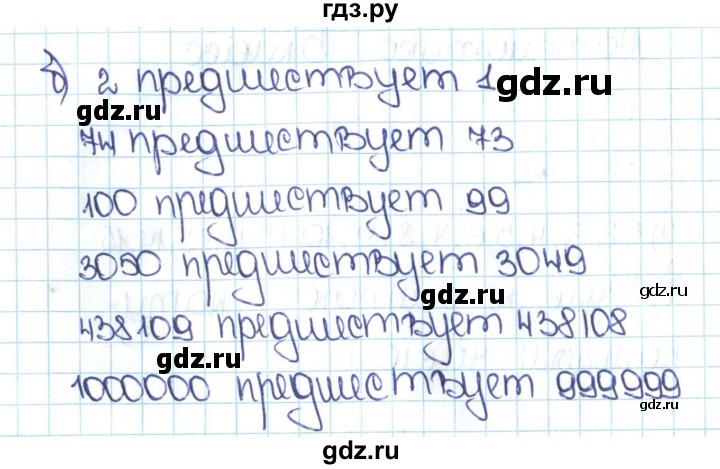 гдз.ру
б) 2 предшествует 1
gdz.ru
gdz.ru
74 предшествует 73
100 предшествует 99
3050 предшествует 3049
gdz.ru
gdz.ru
438109 предшествует 438108
gdz.ru
1000000 предшествует 999999
gdz.ru
gdz.ru